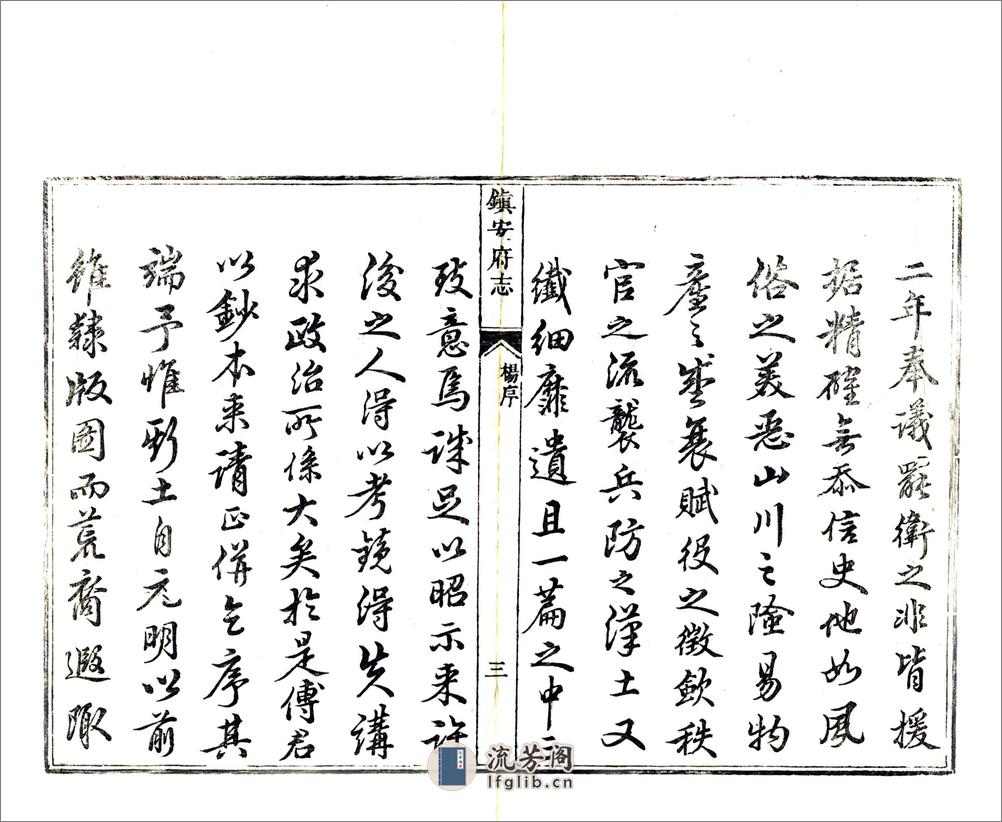 二年奉議罷衛之非皆援
据精確無忝信史他如風
俗之美惡山川之險易物
產之盛衰賦役之徵歛秩
官之流襲兵防之漢土又
纖細靡遺且一篇之中三
鎮安府志
楊序
三
致意焉誠足以昭示来許
後之人得以考鏡得失講
求政治所係大矣於是傅君
以鈔本来請正併乞序其
端予惟斯土自元明以前
雖隸版圖而荒裔遐陬
流芳阁
lfglib.cn